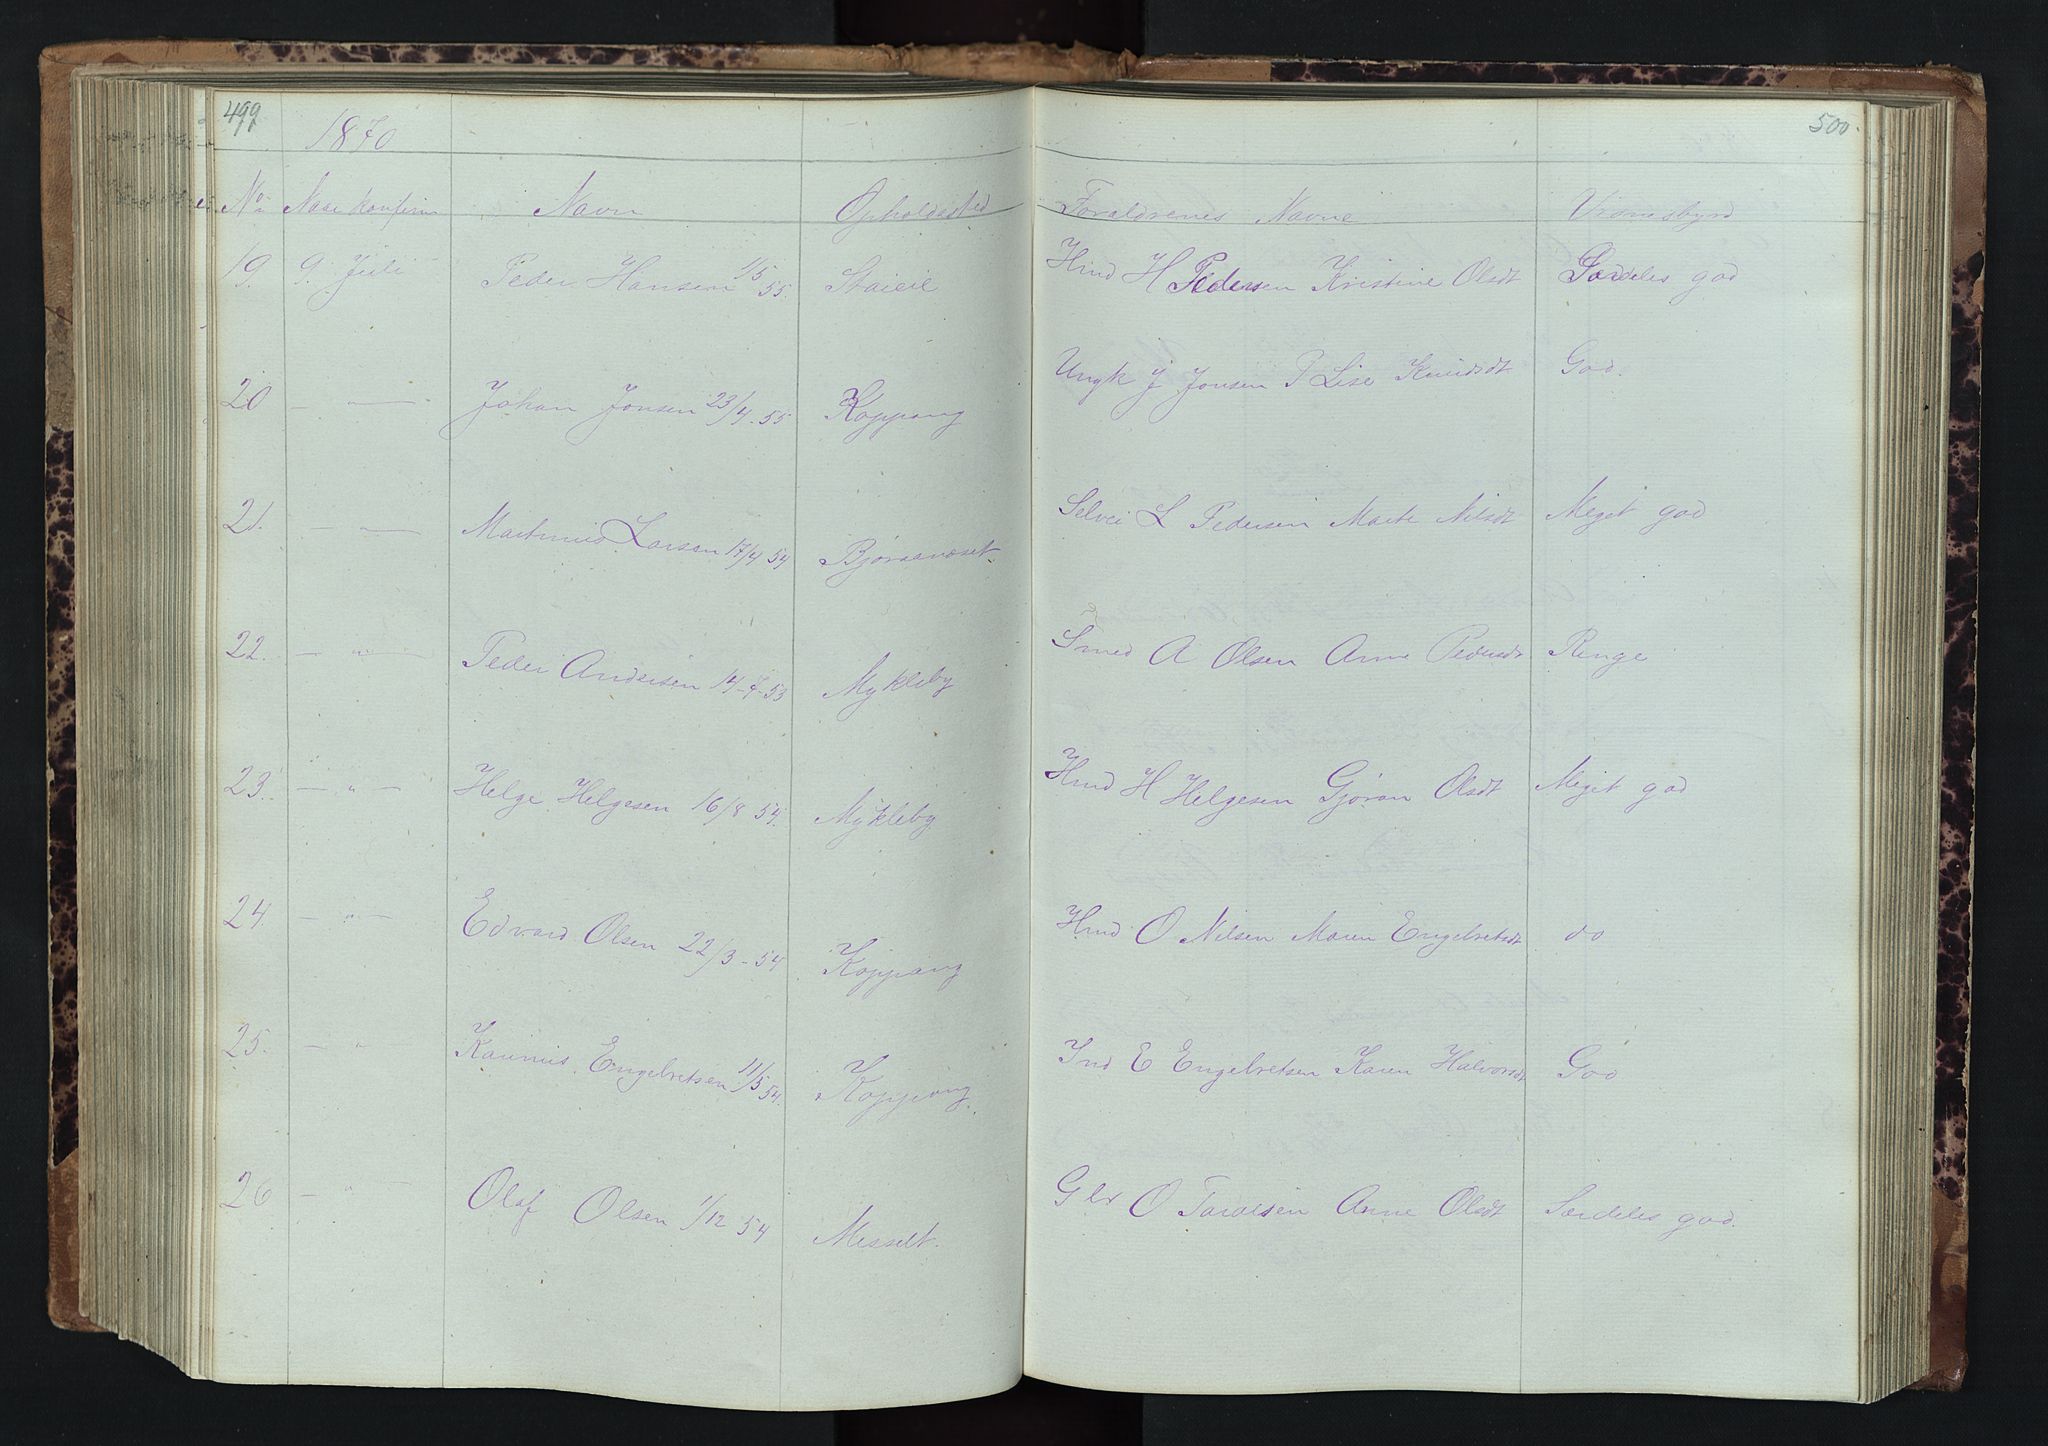 499
500
1870
No Naar konfirm Navn Opholdssted Foraldrenes Navne
19. 9. Juli Peder Hansen 1/5 55. Staieie Hmd H Pedersen Kristine Olsdt Særdeles god
20 — — Johan Jonsen 23/4-55 Koppang Ungk J Jonsen P Lise Knudsdt God.
21. — — Martinius Larsen 17/4 54 Bjøraanæset Selvei L Pedersen Marte Nilsdt Meget god
22. — " — Peder Andersen 14-7-53 Mykleby Smed A Olsen Anne Pedersdt Renge
23. — " — Helge Helgesen 16/8 54. Mykleby Hmd H Helgesen Gjøran Olsdt Meget god
24. — " — Edvard Olsen 22/3-54 Koppang Hmd O Nilsen Maren Engebretsdt do
25. — " — Karinius Engebretsen 11/5 54. Koppang Ind E Engebretsen Karen Halvorsdt God
26 — " — Olaf Olsen 1/12 54 Messelt. Glr O Taralsen Anne Olsdt Særdeles god.